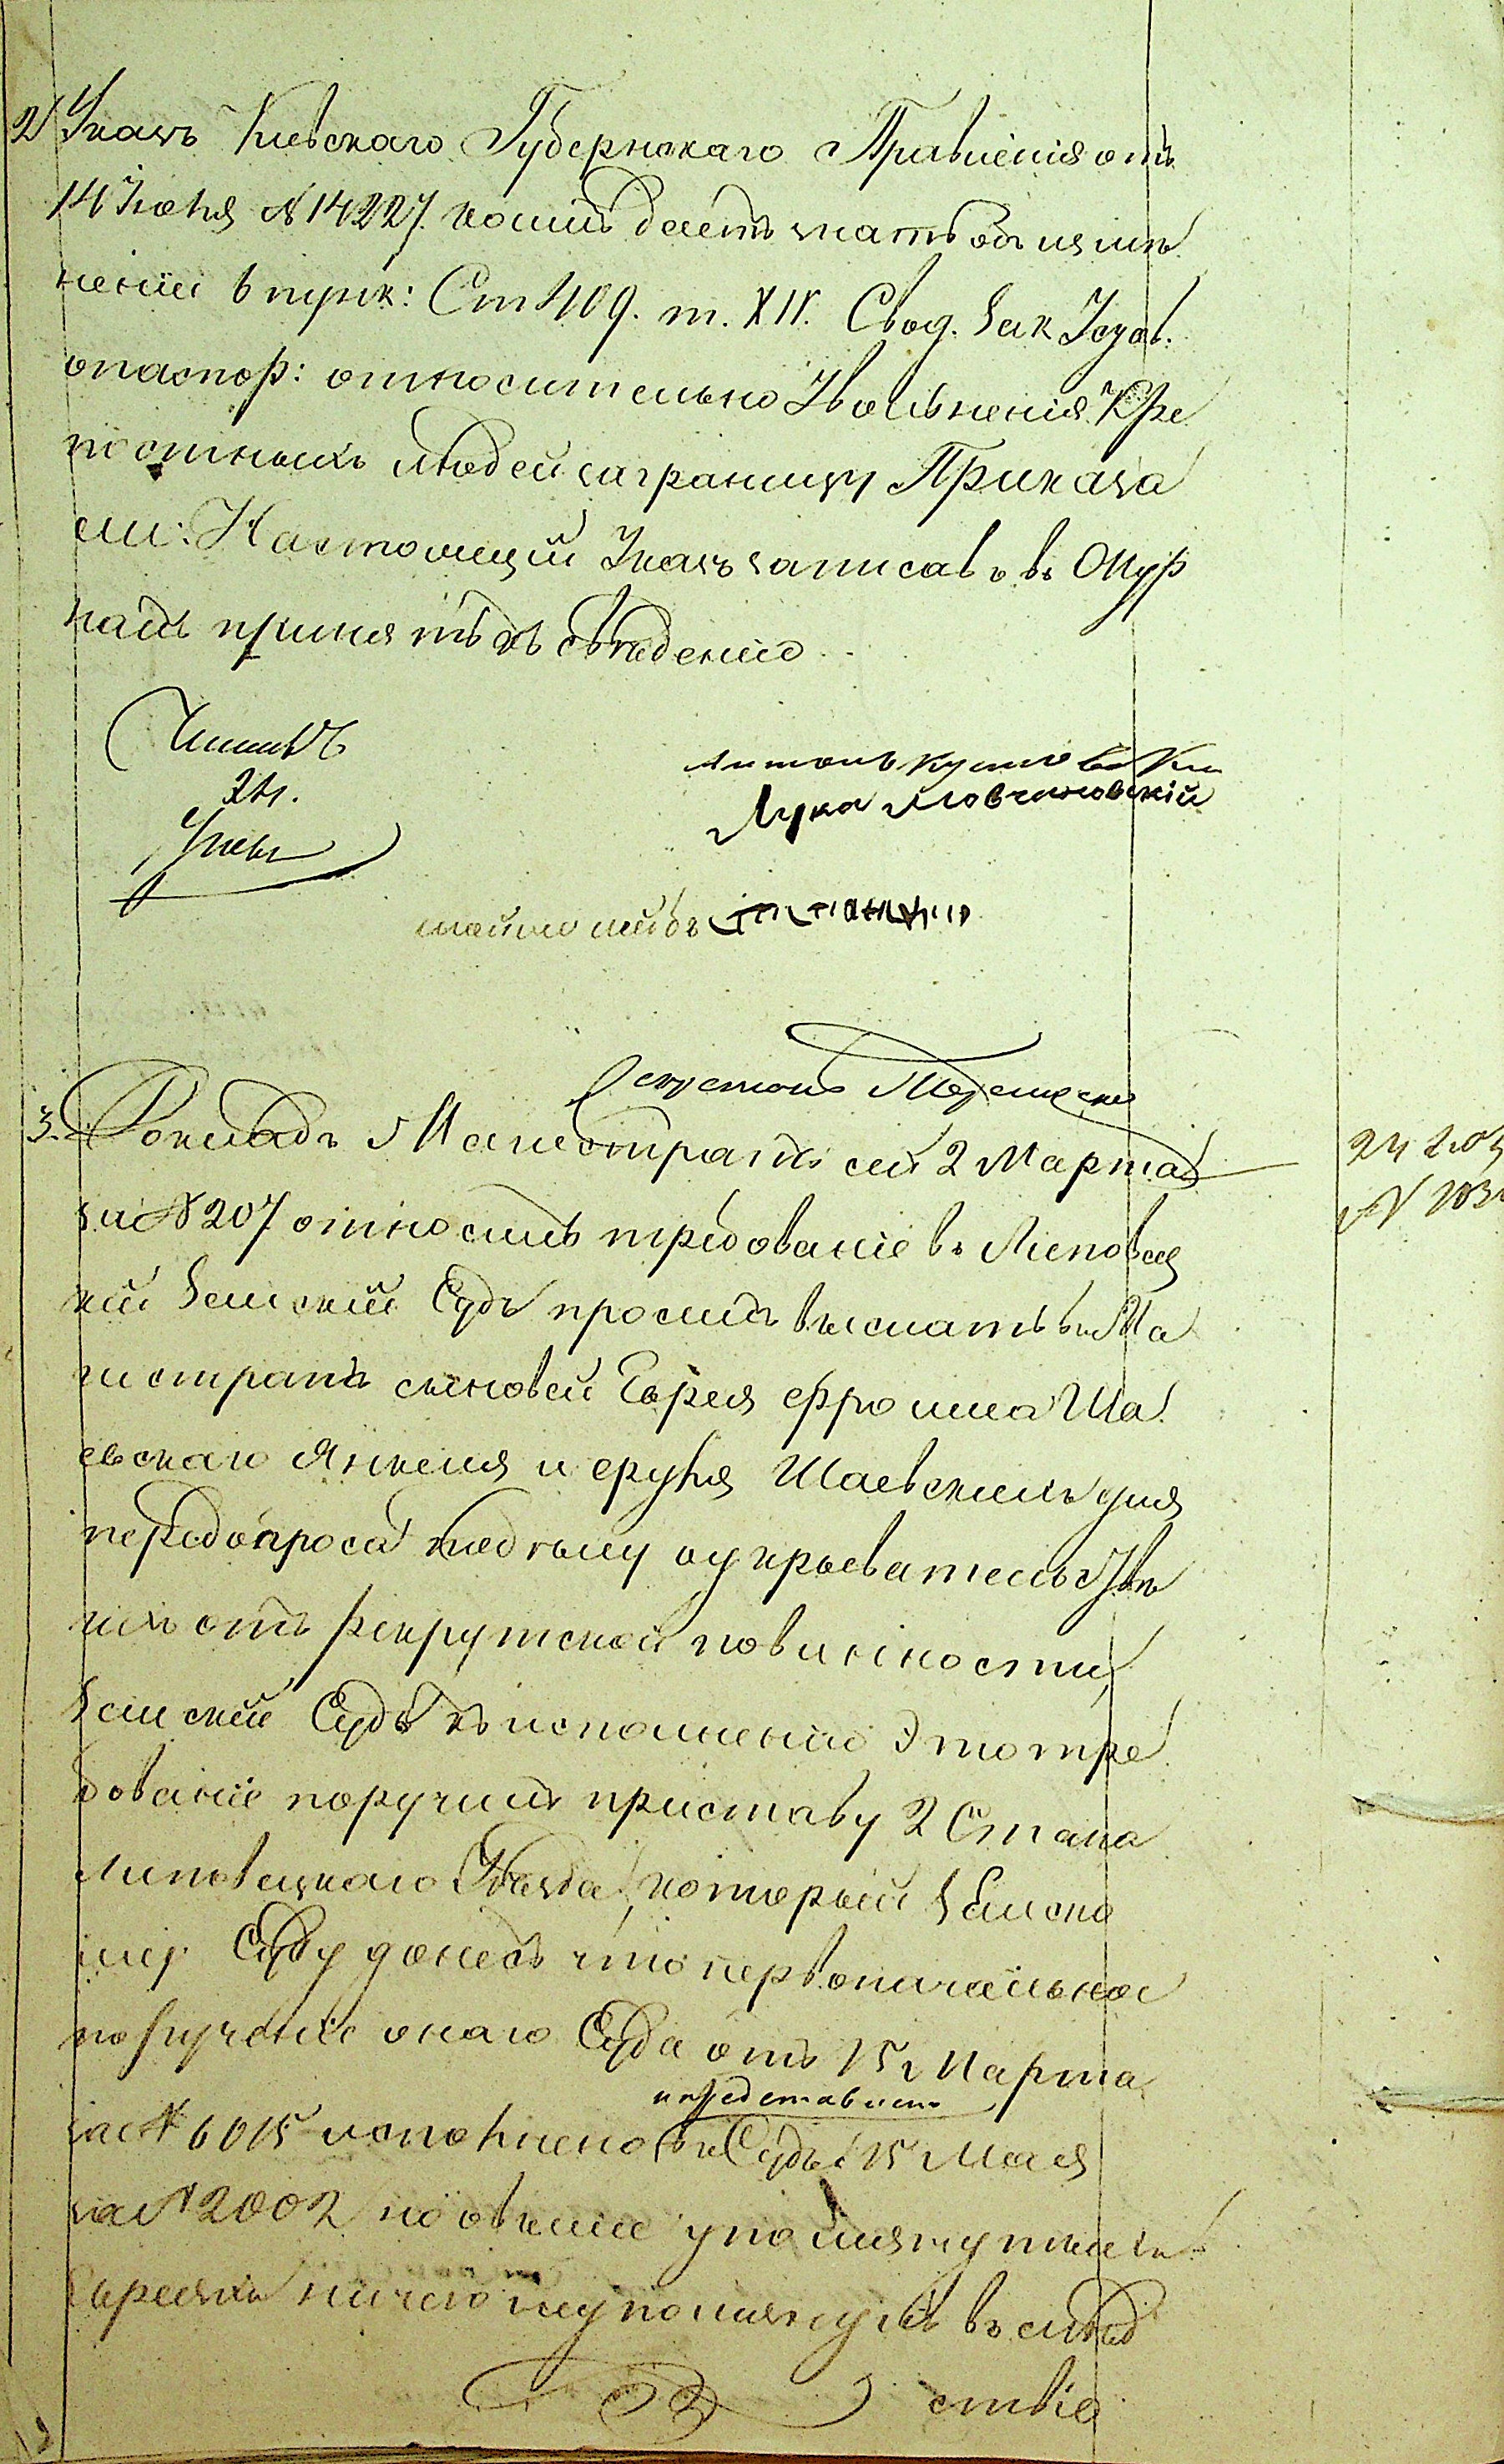 2) Указъ Кіевскаго Губернскаго Правленія отъ
14 Іюня № 14227. коимъ даетъ знать объ измѣ
неніи въ пунк: Ст 409. т. XIV. Свод. Зак Устав.
опаспор: относительно Увольненія Кре
постныхъ людей заграницу Приказа
ли: Настоящій Указъ записавъ въ Жур
налъ принять къ свѣденію
Лука Мовчановскій
3. Докладъ Магистратъ сей 2 Марта
за № 207 относилъ требованіе въ Липовец
кій Земскій Судъ просилъ выслать въ Ма
гистратъ сыновей Еврея Фроима Ша
евскаго Янкеля и Сруля Шаевскихъ для
передопроса по дѣлу о укрывательствѣ
ихъ отъ рекрутской повинности,
Земскій Судъ къ исполненію Это тре
бованіе поручилъ приставу 2 Стана
Липовецкаго Уѣзда, который Земско
му Суду донесъ что первоначальное
порученіе онаго Суда отъ 15 Марта
представлено
за № 6015 исполнено въ Судъ 15 Мая
за № 2002 но овъше упомянутыхъ
Евреяхъ ничего неупомянулъ въ слѣд
ствіе
24 Іюня
№